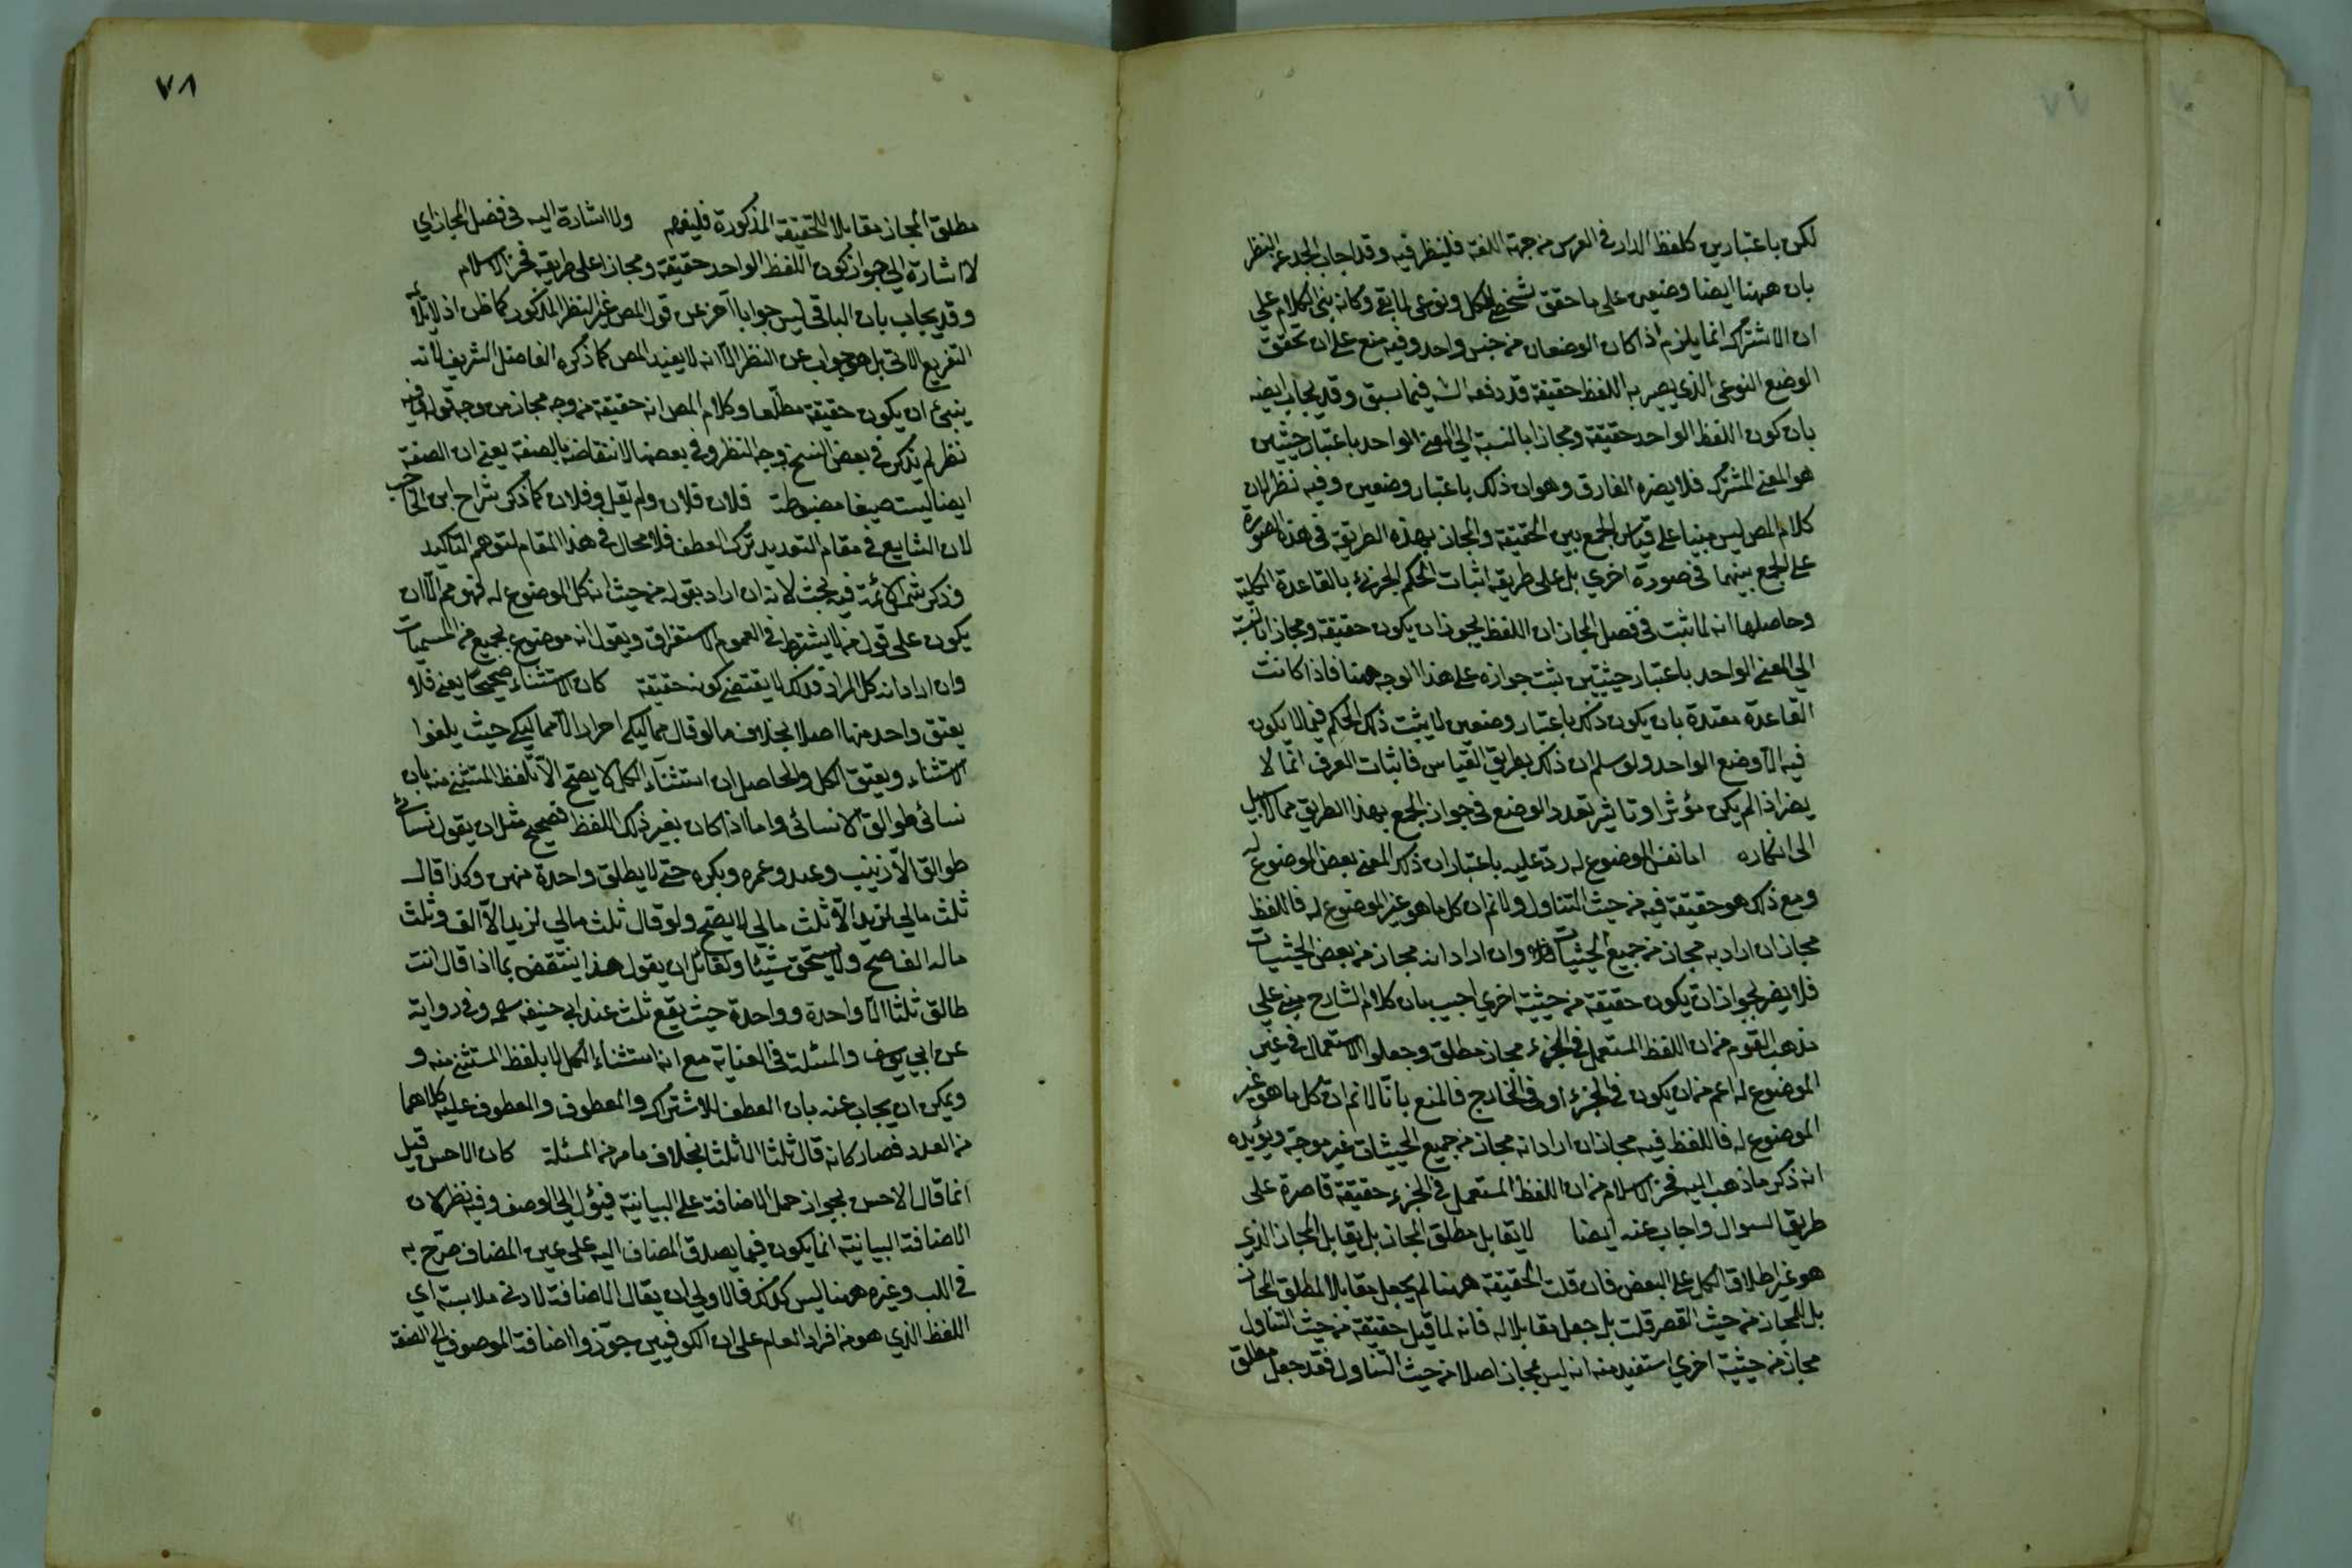 لكن باعتبارين كلفظ الدار في العرس من جهة اللغة فلينظر فيه وقد اجاب الجد عن النظر
بان ههنا ايضا وضعين على ما حقق شخصي للكل ونوعي لما بقي وكانه بنى الكلام علي
ان الاشتراك انما يلزم اذا كان الوضعان من جنس واحد وفيه منع على ان تحقق
الوضع النوعي الذي يصير به اللفظ حقيقة قد دفعه الشه فيما سبق وقد يجاب ايضه
بان كون اللفظ الواحد حقيقة ومجازا بالنسبة الى المعنى الواحد باعتبار حيثيتين
هو المعنى المشترك فلا يضره الفارق وهو ان ذلك باعتبار وضعين وفيه نظر لان
كلام المص ليس مبنيا على قياس الجمع بين الحقيقة والمجاز بهذه الطريقة في هذه الصورة
على الجمع بينهما في صورة اخري بل على طريقه اثبات الحكم الجزئي بالقاعدة الكلية
وحاصلها انه لما ثبت في فصل المجاز ان اللفظ يجوز ان يكون حقيقة ومجازا بالنسبة
الي المعنى الواحد باعتبار حيثيتين يثبت جوازه على هذا الوجه ههنا فاذا كانت
القاعدة مقيدة بان يكون ذلك باعتبار وضعين لا يثبت ذلك الحكم فيما لا يكون
فيه الا وضع الواحد ولو سلم ان ذلك بطريق القياس فاثبات الفرق انما لا
يضر اذا لم يكن مؤثرا وتاثير تعدد الوضع في جواز الجمع بهذا الطريق مما لا سبيل
الى انكاره اما نفس الموضوع له ردّ عليه باعتبار ان ذلك المعنى بعض الموضوع له
ومع ذلك هو حقيقة فيه من حيث التناول ولا نم ان كل ما هو غير الموضوع له فاللفظ
مجاز ان اراد به مجاز من جميع الحيثيات وان اراد انه مجاز من بعض الحيثيات
فلا يضر لجواز ان يكون حقيقة من حيثية اخري اجيب بان كلام الشارح مبني علي
مذهب القوم من ان اللفظ المستعمل في الجزء مجاز مطلق وجعلوا الاستعمال في غير
الموضوع له اعم من ان يكون في الجزء او في الخارج فالمنع بانا لا نم ان كل ما هو غير
الموضوع له فاللفظ فيه مجاز ان اراد انه مجاز من جميع الحيثيات غير موجه ويؤيده
انه ذكر ما ذهب اليه فخر الاسلام من ان اللفظ المستعمل في الجزء حقيقة قاصرة على
طريق السوال واجاب عنه ايضا لا يقابل مطلق المجاز بل يقابل المجاز الذي
هو غير اطلاق الكل على البعض فان قلت الحقيقة ههنا لم يجعل مقابلا لمطلق المجاز
بل للمجاز من حيث القصر قلت بل جعل مقابلا له فانه لما قيل حقيقة من حيث التناول
مجاز من حيثية اخري استفيد منه انه ليس مجاز اصلا من حيث التناول فقد جعل مطلق
٧٨
مطلق المجاز مقابلا للحقيقة المذكورة فليفهم ولا اشارة اليه في فصل المجاز اي
لا اشارة الى جواز كون اللفظ الواحد حقيقة ومجازا على طريقة فخر الاسلام
وقد يجاب بان الباقي ليس جوابا آخر عن قول المص غير النظر المذكور كما ظن اذ لا يلائمه
التفريع الاتي بل هو جواب عن النظر الا انه لا يفيد المص كما ذكره الفاضل الشريف لانه
ينبئ ان يكون حقيقة مطلقا وكلام المص انه حقيقة من وجه مجاز من وجه قوله وفيه
نظر لم يذكر في بعض النسخ وجه النظر وفي بعضها لانتقاضه بالصفة يعني ان الصفة
ايضا ليست صيغا مضبوطة فلان فلان ولم تقل وفلان كما ذكر شراح ابن الحاجب
لان الشايع في مقام التعديد ترك العطف فلا مجال في هذا المقام لتوهم التاكيد
وذكر شمس الائمة فيه بحث لانه ان اراد بقوله من حيث انه كل الموضوع له فهو مم الا ان
يكون على قول من لا يشترط في العموم الاستغراق ويقول انه موضوع لجميع من المسميات
وان اراد انه كل المراد فذلك لا يقتضي كونه حقيقة كان الاستثناء صحيحا يعني فلا
يعتق واحد منها اصلا بخلاف ما لو قال مماليكي احرار الا مماليكي حيث يلغوا
الاستثناء ويعتق الكل والحاصل ان استثناء الكل لا يصح الا بلفظ المستثنى منه بان
نسائي طوالق الا نسائي واما اذا كان بغير ذلك اللفظ فصحيح مثل ان يقول نسائي
طوالق الا زينب وعد وعمره وبكره حتى لا يطلق واحدة منهن وكذا قال
ثلث مالي لزيد الا ثلث مالي لا يصح ولو قال ثلث مالي لزيد الا الف وثلث
ماله الف صح ولا يستحق شيئا ولقائل ان يقول هذا ينتقض بما اذا قال انت
طالق ثلثا الا واحدة وواحدة حيث يقع ثلث عند ابي حنيفه وفي رواية
عن ابي يوسف والمسئلة في الغياية مع انه استثناء الكل لا بلفظ المستثنى منه و
ويمكن ان يجاب عنه بان العطف للاشتراك والمعطوف والمعطوف عليه كلاهما
من العدد فصار كانه قال ثلثا الا ثلثا بخلاف ما مر من المسئلة كان الاحسن قيل
انما قال الاحسن لجواز حمل الاضافة على البيانية فيئول الي الوصف وفيه نظر لان
الاضافة البيانية انما يكون فيما يصدق المضاف اليه على عين المضاف صرّح به
في اللب وغيره ههنا ليس كذلك فالاولى ان يقال الاضافة لادنى ملابسة اي
اللفظ الذي هو من افراد العام على ان الكوفيين جوّزوا اضافة الموصوف الي الصفة